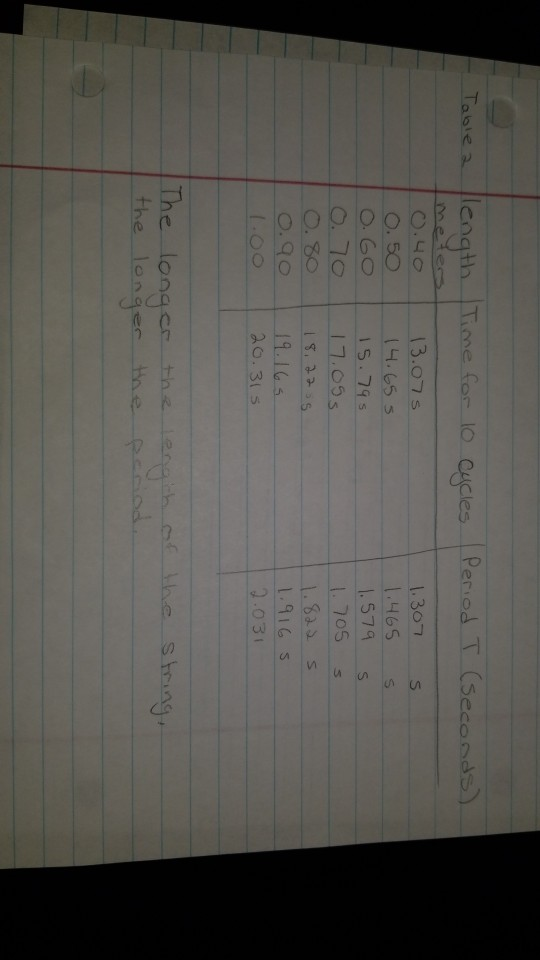 Table 2 length meters | Time for 10 cycles | Period T (seconds)
0.40 13.07 s 1.307 s
0.50 14.65 s 1.465 s
0.60 15.79 s 1.579 s
0.70 17.05 s 1.705 s
0.80 18.22 s 1.822 s
0.90 19.16 s 1.916 s
1.00 20.31 s 2.031
The longer the length of the string,
the longer the period.